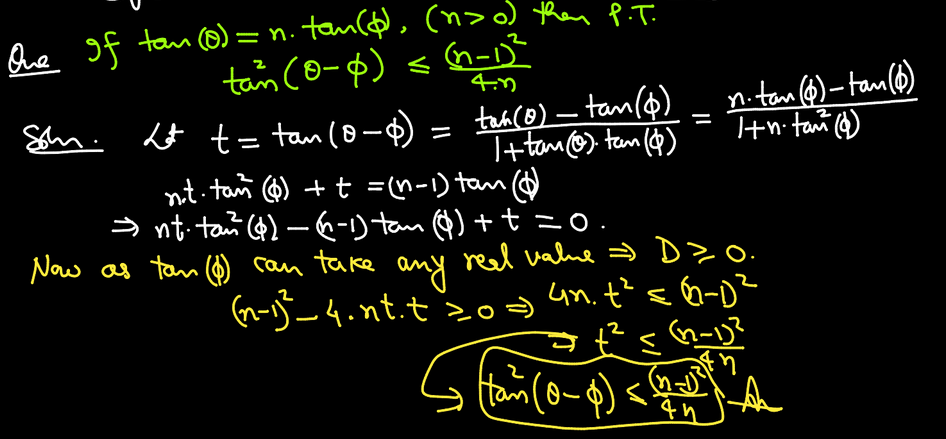 Que If tan(θ) = n. tan(ϕ), (n>0) then P.T.
tan²(θ-ϕ) ≤ (n-1)²/4.n
Soln. Let t = tan(θ-ϕ) = (tan(θ) - tan(ϕ))/(1+tan(θ).tan(ϕ)) = (n.tan(ϕ) - tan(ϕ))/(1+n.tan²(ϕ))
n.t.tan²(ϕ) + t = (n-1) tan(ϕ)
⇒ nt.tan²(ϕ) - (n-1) tan(ϕ) + t = 0.
Now as tan(ϕ) can take any real value ⇒ D ≥ 0.
(n-1)² - 4.nt.t ≥ 0 ⇒ 4n.t² ≤ (n-1)²
⇒ t² ≤ (n-1)²/4n
→ tan²(θ-ϕ) ≤ (n-1)²/4n